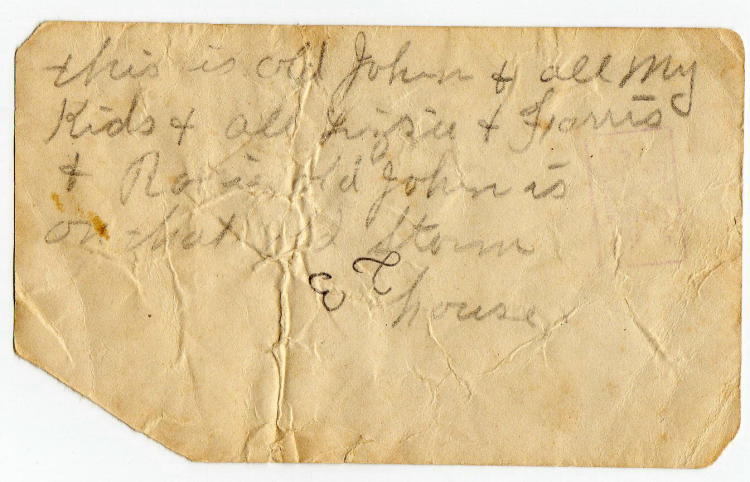 this is old John & all My
Kids & all Lizzie & Farris
& Rosie old John is
on that old Storm
house